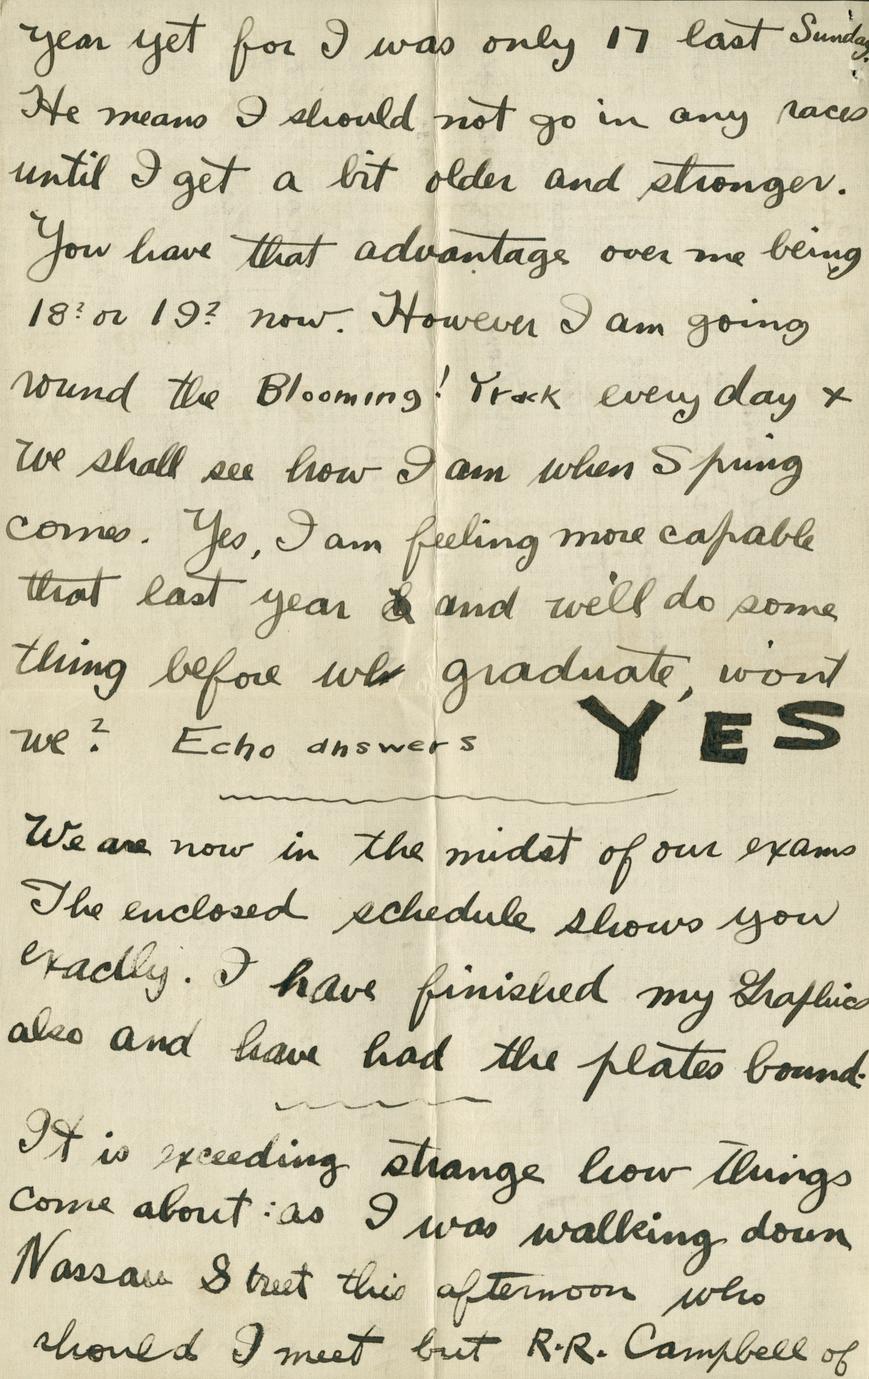 year yet for I was only 17 last Sunday.
He means I should not go in any races
until I get a bit older and stronger.
You have that advantage over me being
18? or 19? now. However I am going
round the Blooming! Track every day +
we shall see how I am when Spring
comes. Yes, I am feeling more capable
that last year and we'll do some
thing before we graduate, won't
we? Echo answers YES
We are now in the midst of our exams
The enclosed schedule shows you
exactly. I have finished my Graphics
also and have had the plates bound.
It is exceeding strange how things
come about: as I was walking down
Nassau Street this afternoon who
should I meet but R.R. Campbell of